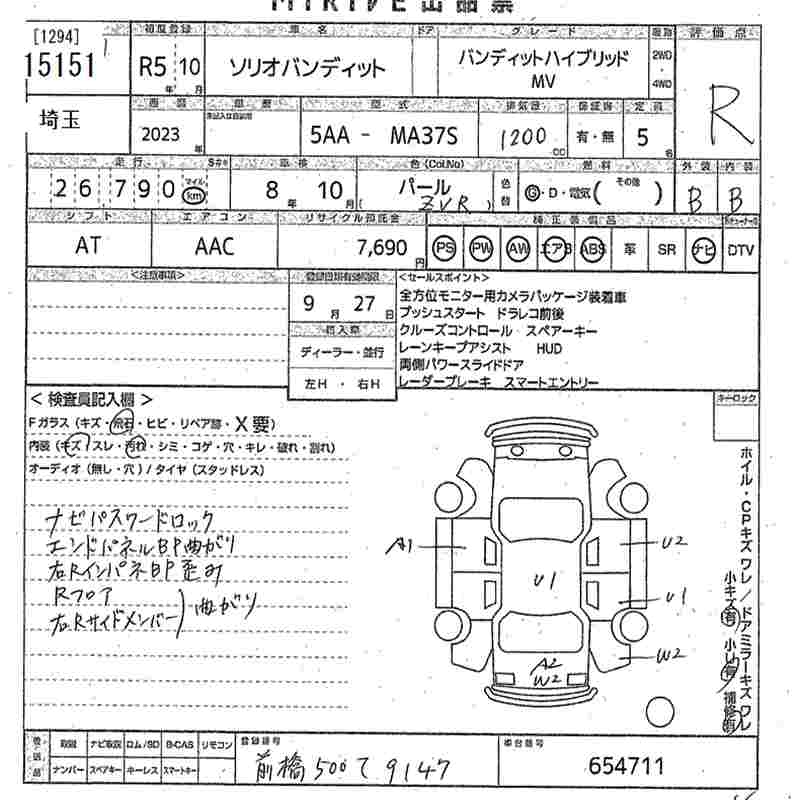 MIRIVE出品票
[1294]
15151
埼玉
初度登録 車名 ドア グレード 駆動 評価点
R5 10 年 月
ソリオバンディット
バンディットハイブリッド
MV
2WD・4WD
R
型式 排気量 保証書 定員
2023 年
5AA - MA37S
1200 cc
有・無
5 名
走行 車検 色(Col.No) 燃料 外装 内装
26790 マイル km
8 年 10 月
パール
(ZVR)
色替
G・D・電気( その他 )
B B
シフト エアコン リサイクル預託金 純正装備品
AT AAC 7,690 円
PS PW AW エアB ABS 革 SR ナビ DTV
<注意事項>
9 月 27 日
輸入車
ディーラー・並行
左H ・ 右H
<セールスポイント>
全方位モニター用カメラパッケージ装着車
プッシュスタート ドラレコ前後
クルーズコントロール スペアーキー
レーンキープアシスト HUD
両側パワースライドドア
レーダーブレーキ スマートエントリー
キーロック
<検査員記入欄>
Fガラス(キズ・飛石・ヒビ・リペア跡・X要)
内装(キズ/スレ・汚れ・シミ・コゲ・穴・キレ・破れ・割れ)
オーディオ(無し・穴)/タイヤ(スタッドレス)
ナビパスワードロック
エンドパネルBP曲がり
右RインパネBP歪み
Rフロア
右Rサイドメンバー
曲がり
A1
U2
U1
U1
A2
W2
W2
ホイル・CPキズワレ/ドアミラーキズワレ
小キズ有 小U有 補修有
取説 ナビ取説 ロム/SD B-CAS リモコン
ナンバー スペアキー キーレス スマートキー
登録番号
前橋500て9147
車台番号
654711